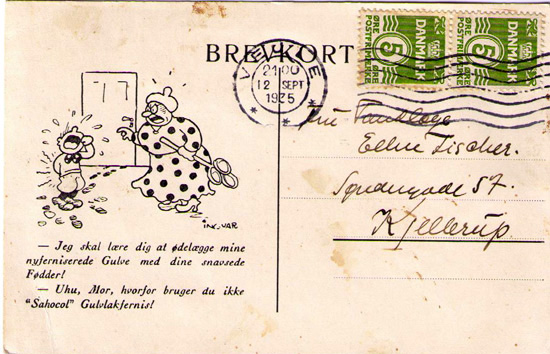 BREVKORT
VEJLE
21.00
12 SEPT
1935
5 ØRE
DANMARK
POSTFRIMÆRKE
5 ØRE
DANMARK
POSTFRIMÆRKE
Fru
Ellen Fischer.
57.
Kjellerup.
ING.VAR
— Jeg skal lære dig at ødelægge mine
nyferniserede Gulve med dine snavsede
Fødder!
— Uhu, Mor, hvorfor bruger du ikke
"Sahocol" Gulvlakfernis!